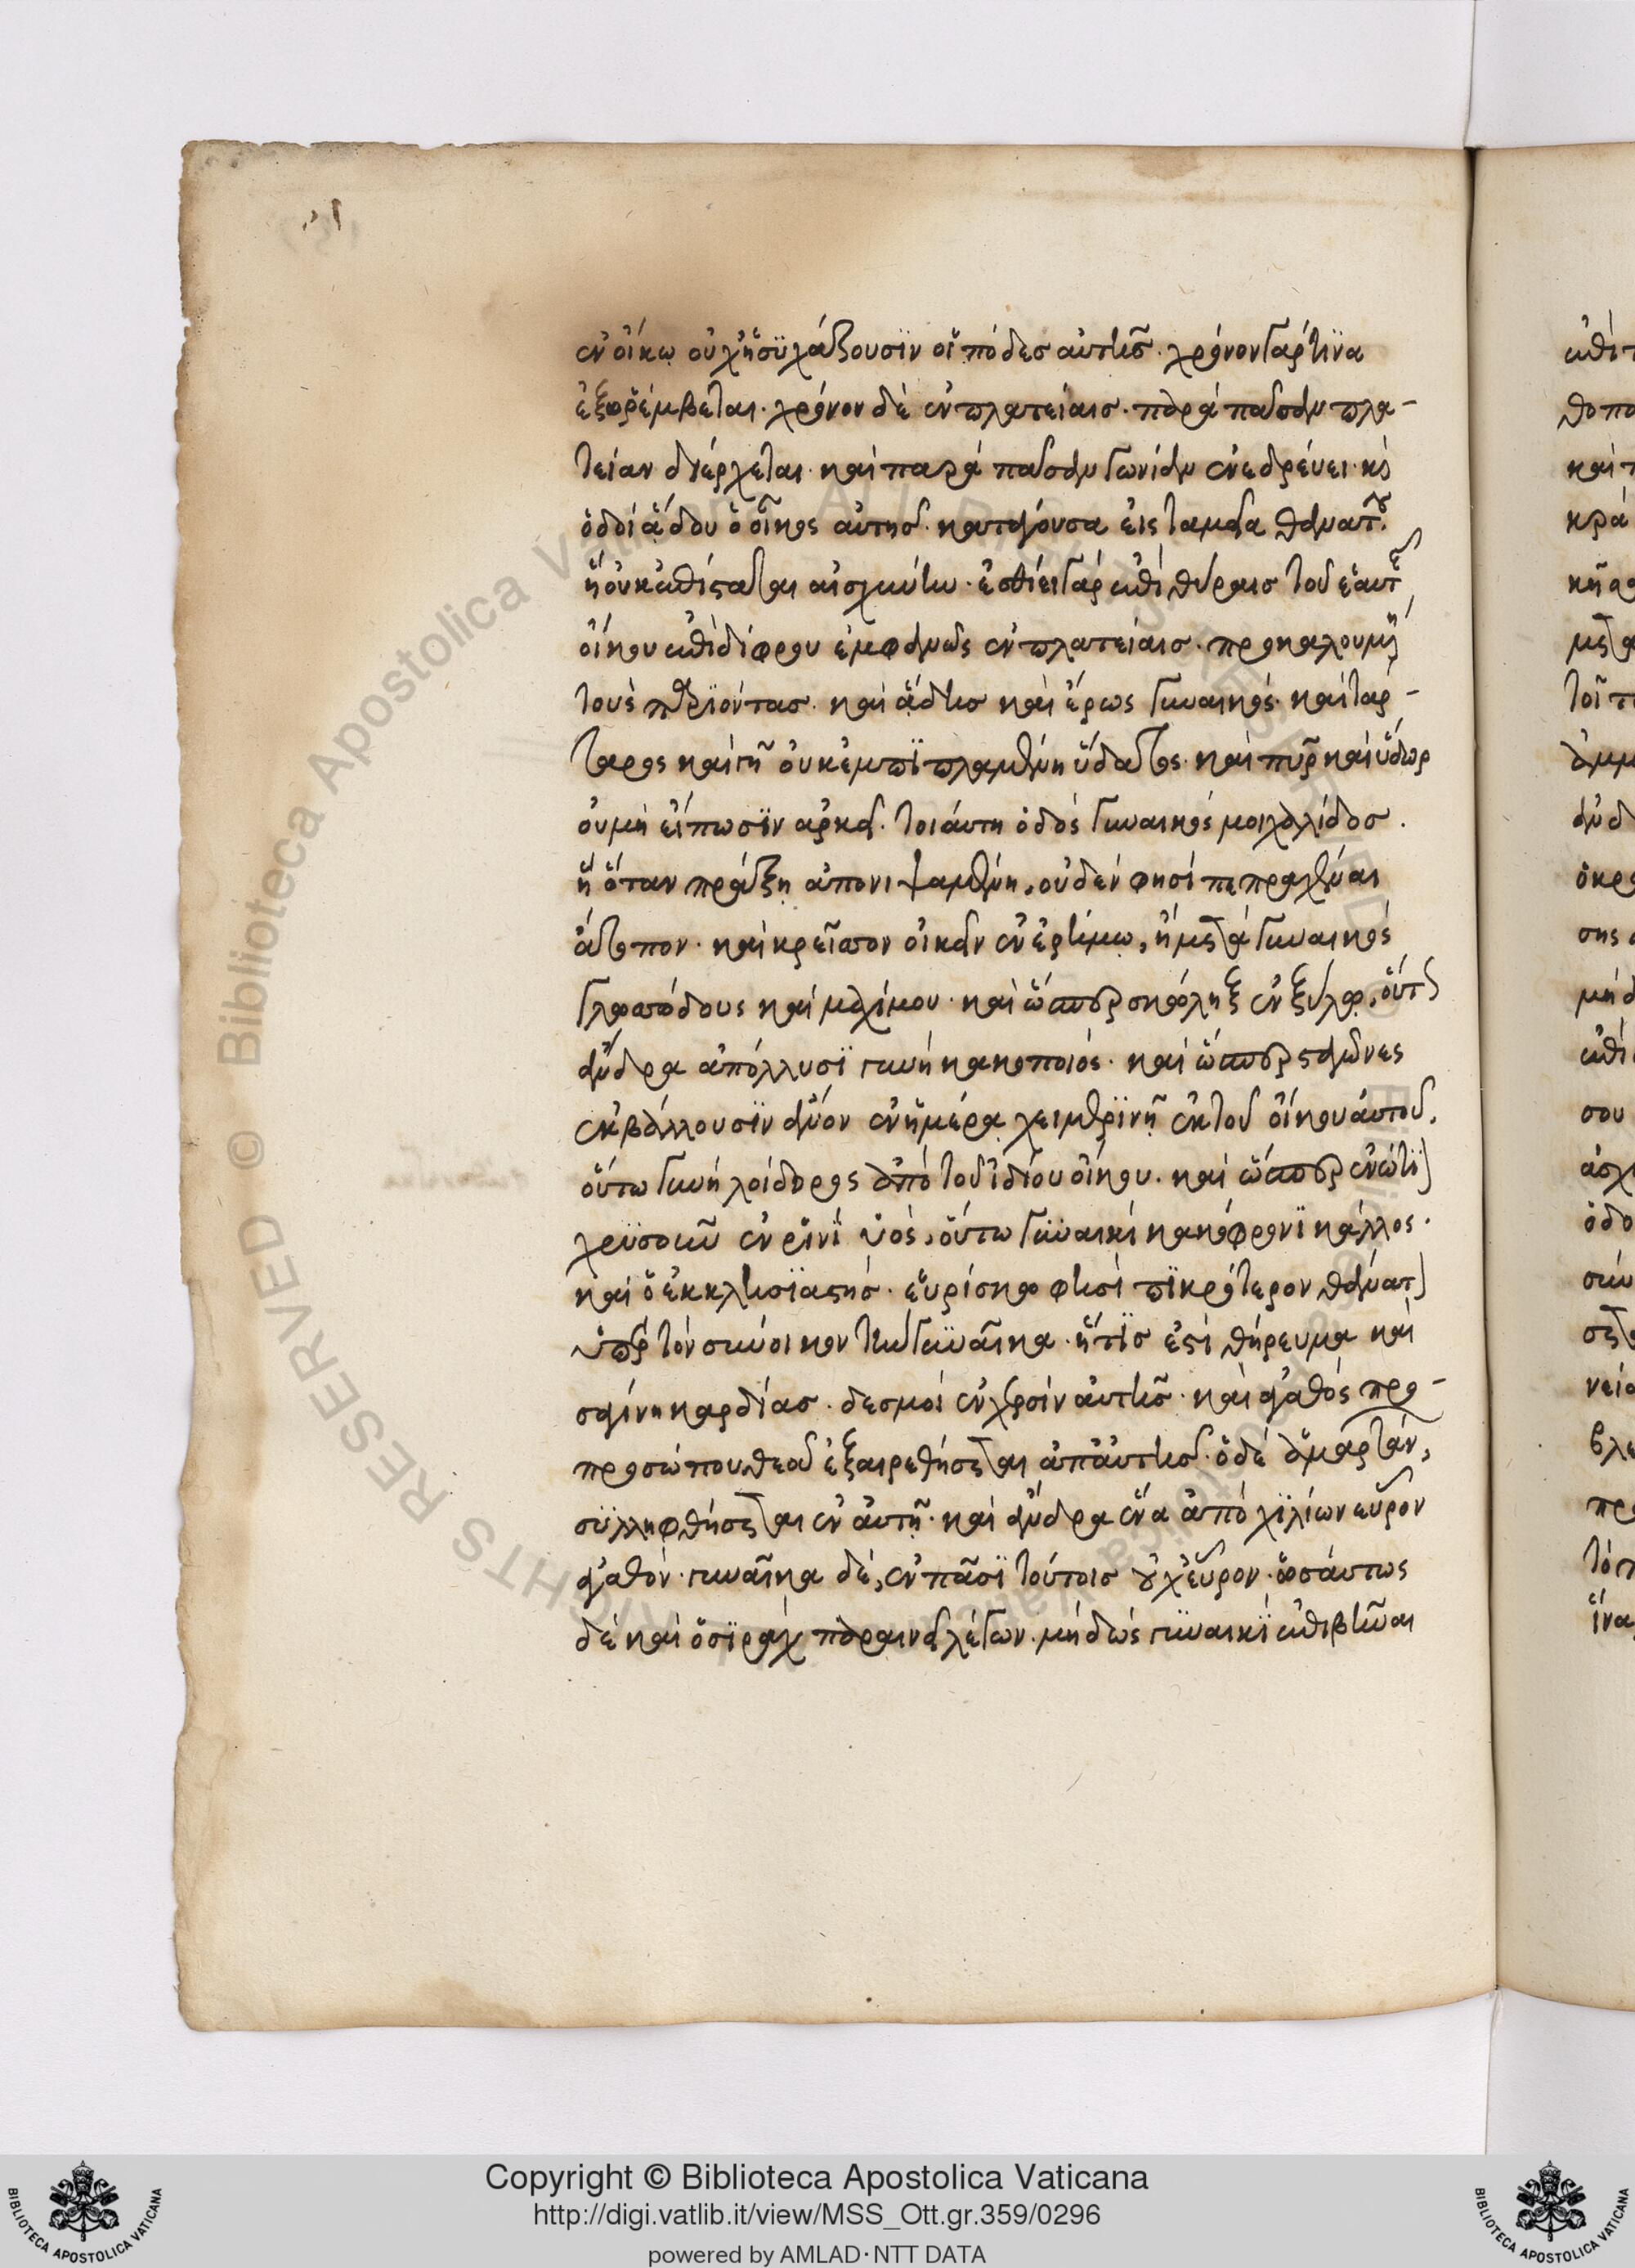 ἐν οἴκω οὐχ ἡσυχάζουσιν οἱ πόδες αὐτῆς. χρόνον γάρ τινα
ἔξω ῥέμβεται. χρόνον δὲ ἐν πλατείαις. παρὰ πᾶσαν πλα-
τείαν διέρχεται. καὶ παρὰ πᾶσαν γωνίαν ἐνεδρεύει. κὶ
ὁδοὶ ἅδου ὁ οἶκος αὐτῆς. κατάγουσα εἰς ταμεῖα θανάτου.
ἣ οὐκ ἐπίσταται αἰσχύνην. ἐσθίει γὰρ ἐπὶ θύραις τοῦ ἑαυτῆς
οἴκου ἐπὶ δίφρου ἐμφανῶς ἐν πλατείαις. προκαλουμένη
τοὺς παριόντας. καὶ ἅδης καὶ ἔρως γυναικός. καὶ τάρ-
ταρος καὶ γῆ οὐκ ἐμπιπλαμένη ὕδατος. καὶ πῦρ καὶ ὕδωρ
οὐ μὴ εἴπωσιν ἀρκεῖ. τοιαύτη ὁδὸς γυναικὸς μοιχαλίδος.
ἣ ὅταν πράξη ἀπονιψαμένη, οὐδέν φησι πεπραχέναι
ἄτοπον. καὶ κρεῖττον οἰκεῖν ἐν ἐρήμω, ἢ μετὰ γυναικὸς
γλωσσώδους καὶ μαχίμου. καὶ ὥσπερ σκώληξ ἐν ξύλω, οὕτως
ἄνδρα ἀπόλλυσι γυνὴ κακοποιός. καὶ ὥσπερ σταγόνες
ἐκβάλλουσιν ἄνον ἐν ἡμέρα χειμερινῆ ἐκ τοῦ οἴκου αὐτοῦ.
οὕτω γυνὴ λοίδορος ἀπὸ τοῦ ἰδίου οἴκου. καὶ ὥσπερ ἐνώτιον
χρυσοῦν ἐν ῥινὶ ὑός, οὕτω γυναικὶ κακόφρονι κάλλος.
καὶ ὁ ἐκκλησιαστής. εὑρίσκω φησὶ πικρότερον θανάτου
ὑπὲρ τὸν σύνοικον τὴν γυναῖκα. ἥτις ἐστὶ θήρευμα καὶ
σαγήνη καρδίας. δεσμοὶ ἐν χερσὶν αὐτῆς. καὶ ἀγαθὸς προ-
προσώπου θεοῦ ἐξαιρεθήσεται ἀπ' αὐτῆς. ὁ δὲ ἁμαρτάνων,
συλληφθήσεται ἐν αὐτῆ. καὶ ἄνδρα ἕνα ἀπὸ χιλίων εὗρον
ἀγαθόν. γυναῖκα δέ, ἐν πᾶσι τούτοις οὐχ εὗρον. ὡσαύτως
δὲ καὶ ὁ σιρὰχ παραινεῖ λέγων. μὴ δῶς γυναικὶ ἐπιβῆναι